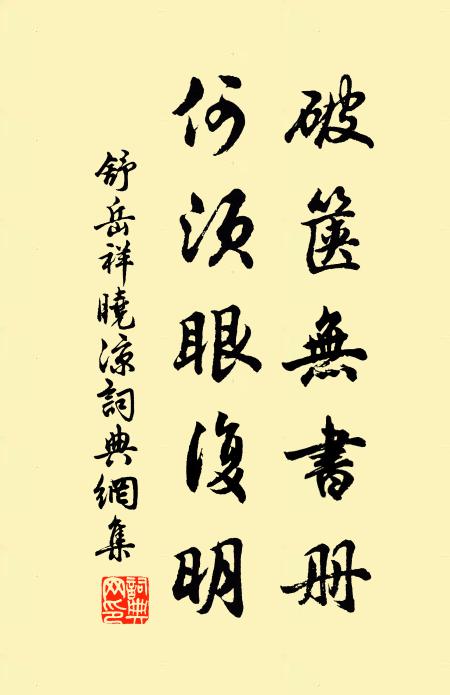 破篋無書册
何須眼復明
舒岳祥曉涼詞典網集
詞典
网印